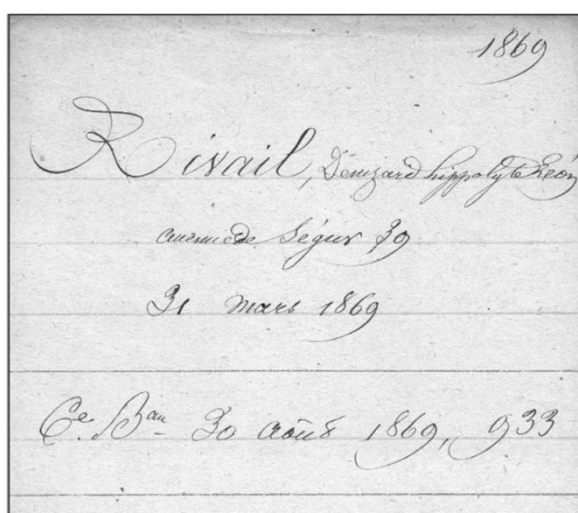 1869
Rivail, Dénizard hippolyte Léon
avenue de Ségur 39
31 mars 1869
Ce. Bau 30 août 1869, 933